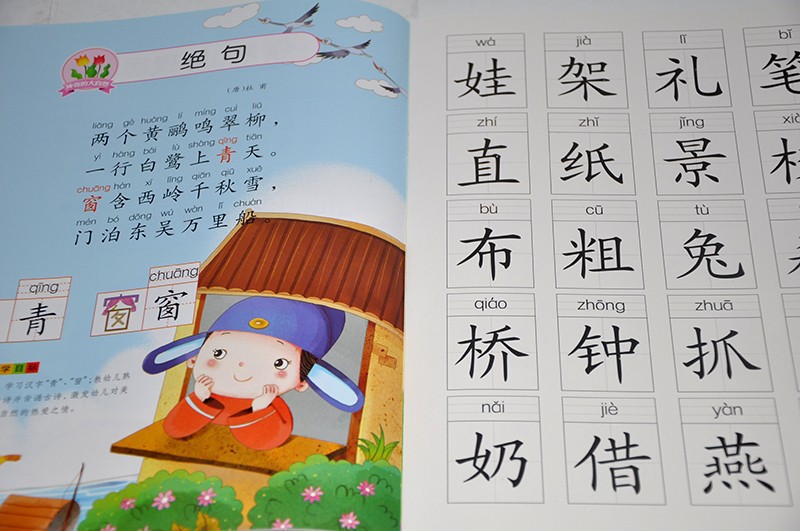 绝句
(唐)杜甫
liǎng gè huáng lí míng cuì liǔ
两个黄鹂鸣翠柳，
yì háng bái lù shàng qīng tiān
一行白鹭上青天。
chuāng hán xī lǐng qiān qiū xuě
窗含西岭千秋雪，
mén bó dōng wú wàn lǐ chuán
门泊东吴万里船。
qīng chuāng
青 窗 窗
学目标
学习汉字"青"、"窗"；教幼儿熟
诗并背诵古诗，激发幼儿对美
自然的热爱之情。
wá jià lǐ bǐ
娃 架 礼 笔
zhí zhǐ jǐng
直 纸 景
bù cū tù
布 粗 兔
qiáo zhōng zhuā
桥 钟 抓
nǎi jiè yàn
奶 借 燕